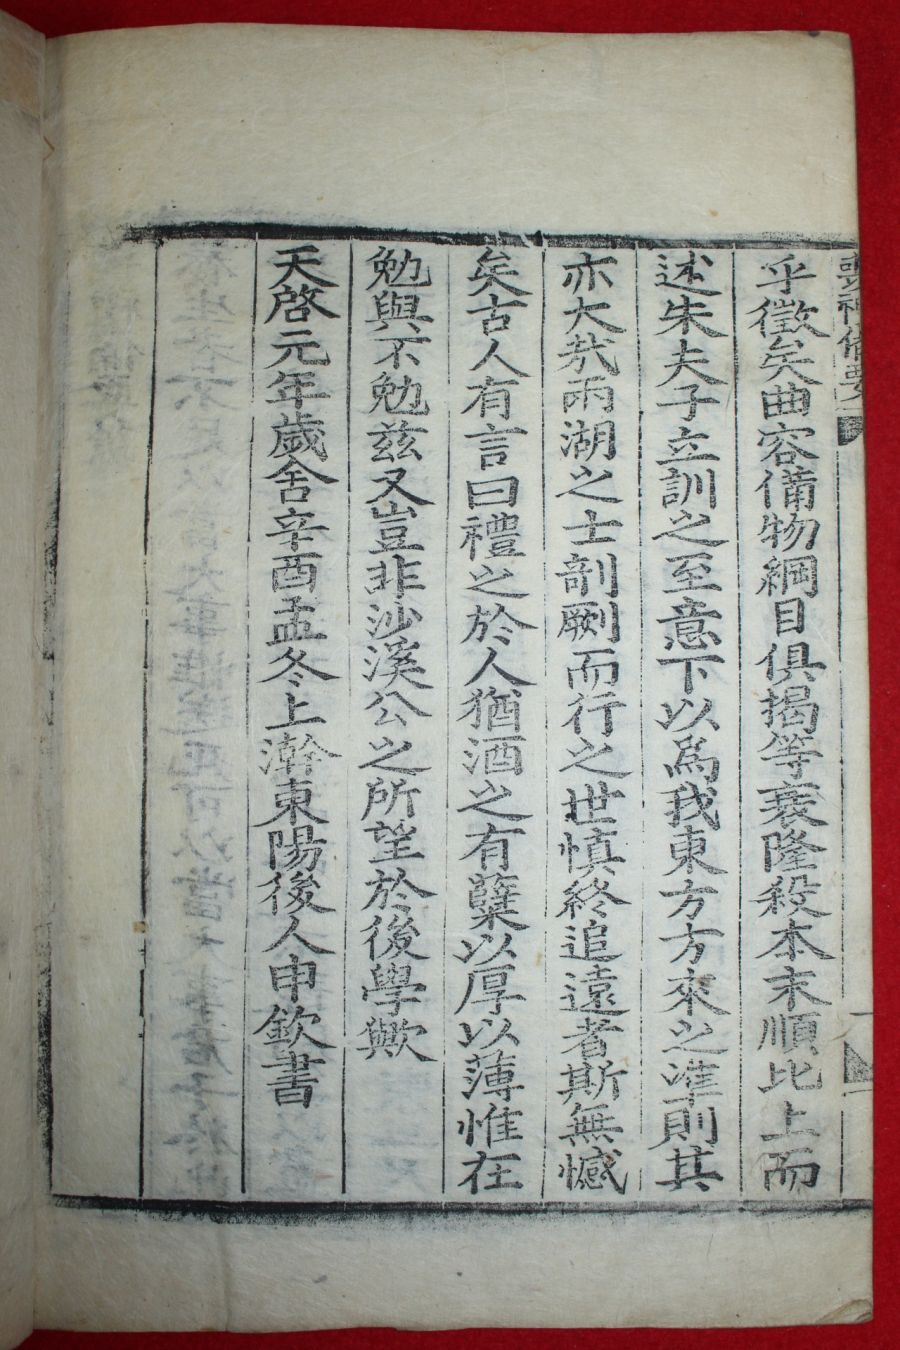 喪禮備要
乎徵矣曲容備物綱目俱揭等衰隆殺本末順比上而
述朱夫子立訓之至意下以爲我東方方來之準則其
亦大哉兩湖之士剖劂而行之世愼終追遠者斯無憾
矣古人有言曰禮之於人猶酒之有蘖以厚以薄惟在
勉與不勉茲又豈非沙溪公之所望於後學歟
天啓元年歲舍辛酉孟冬上澣東陽後人申欽書